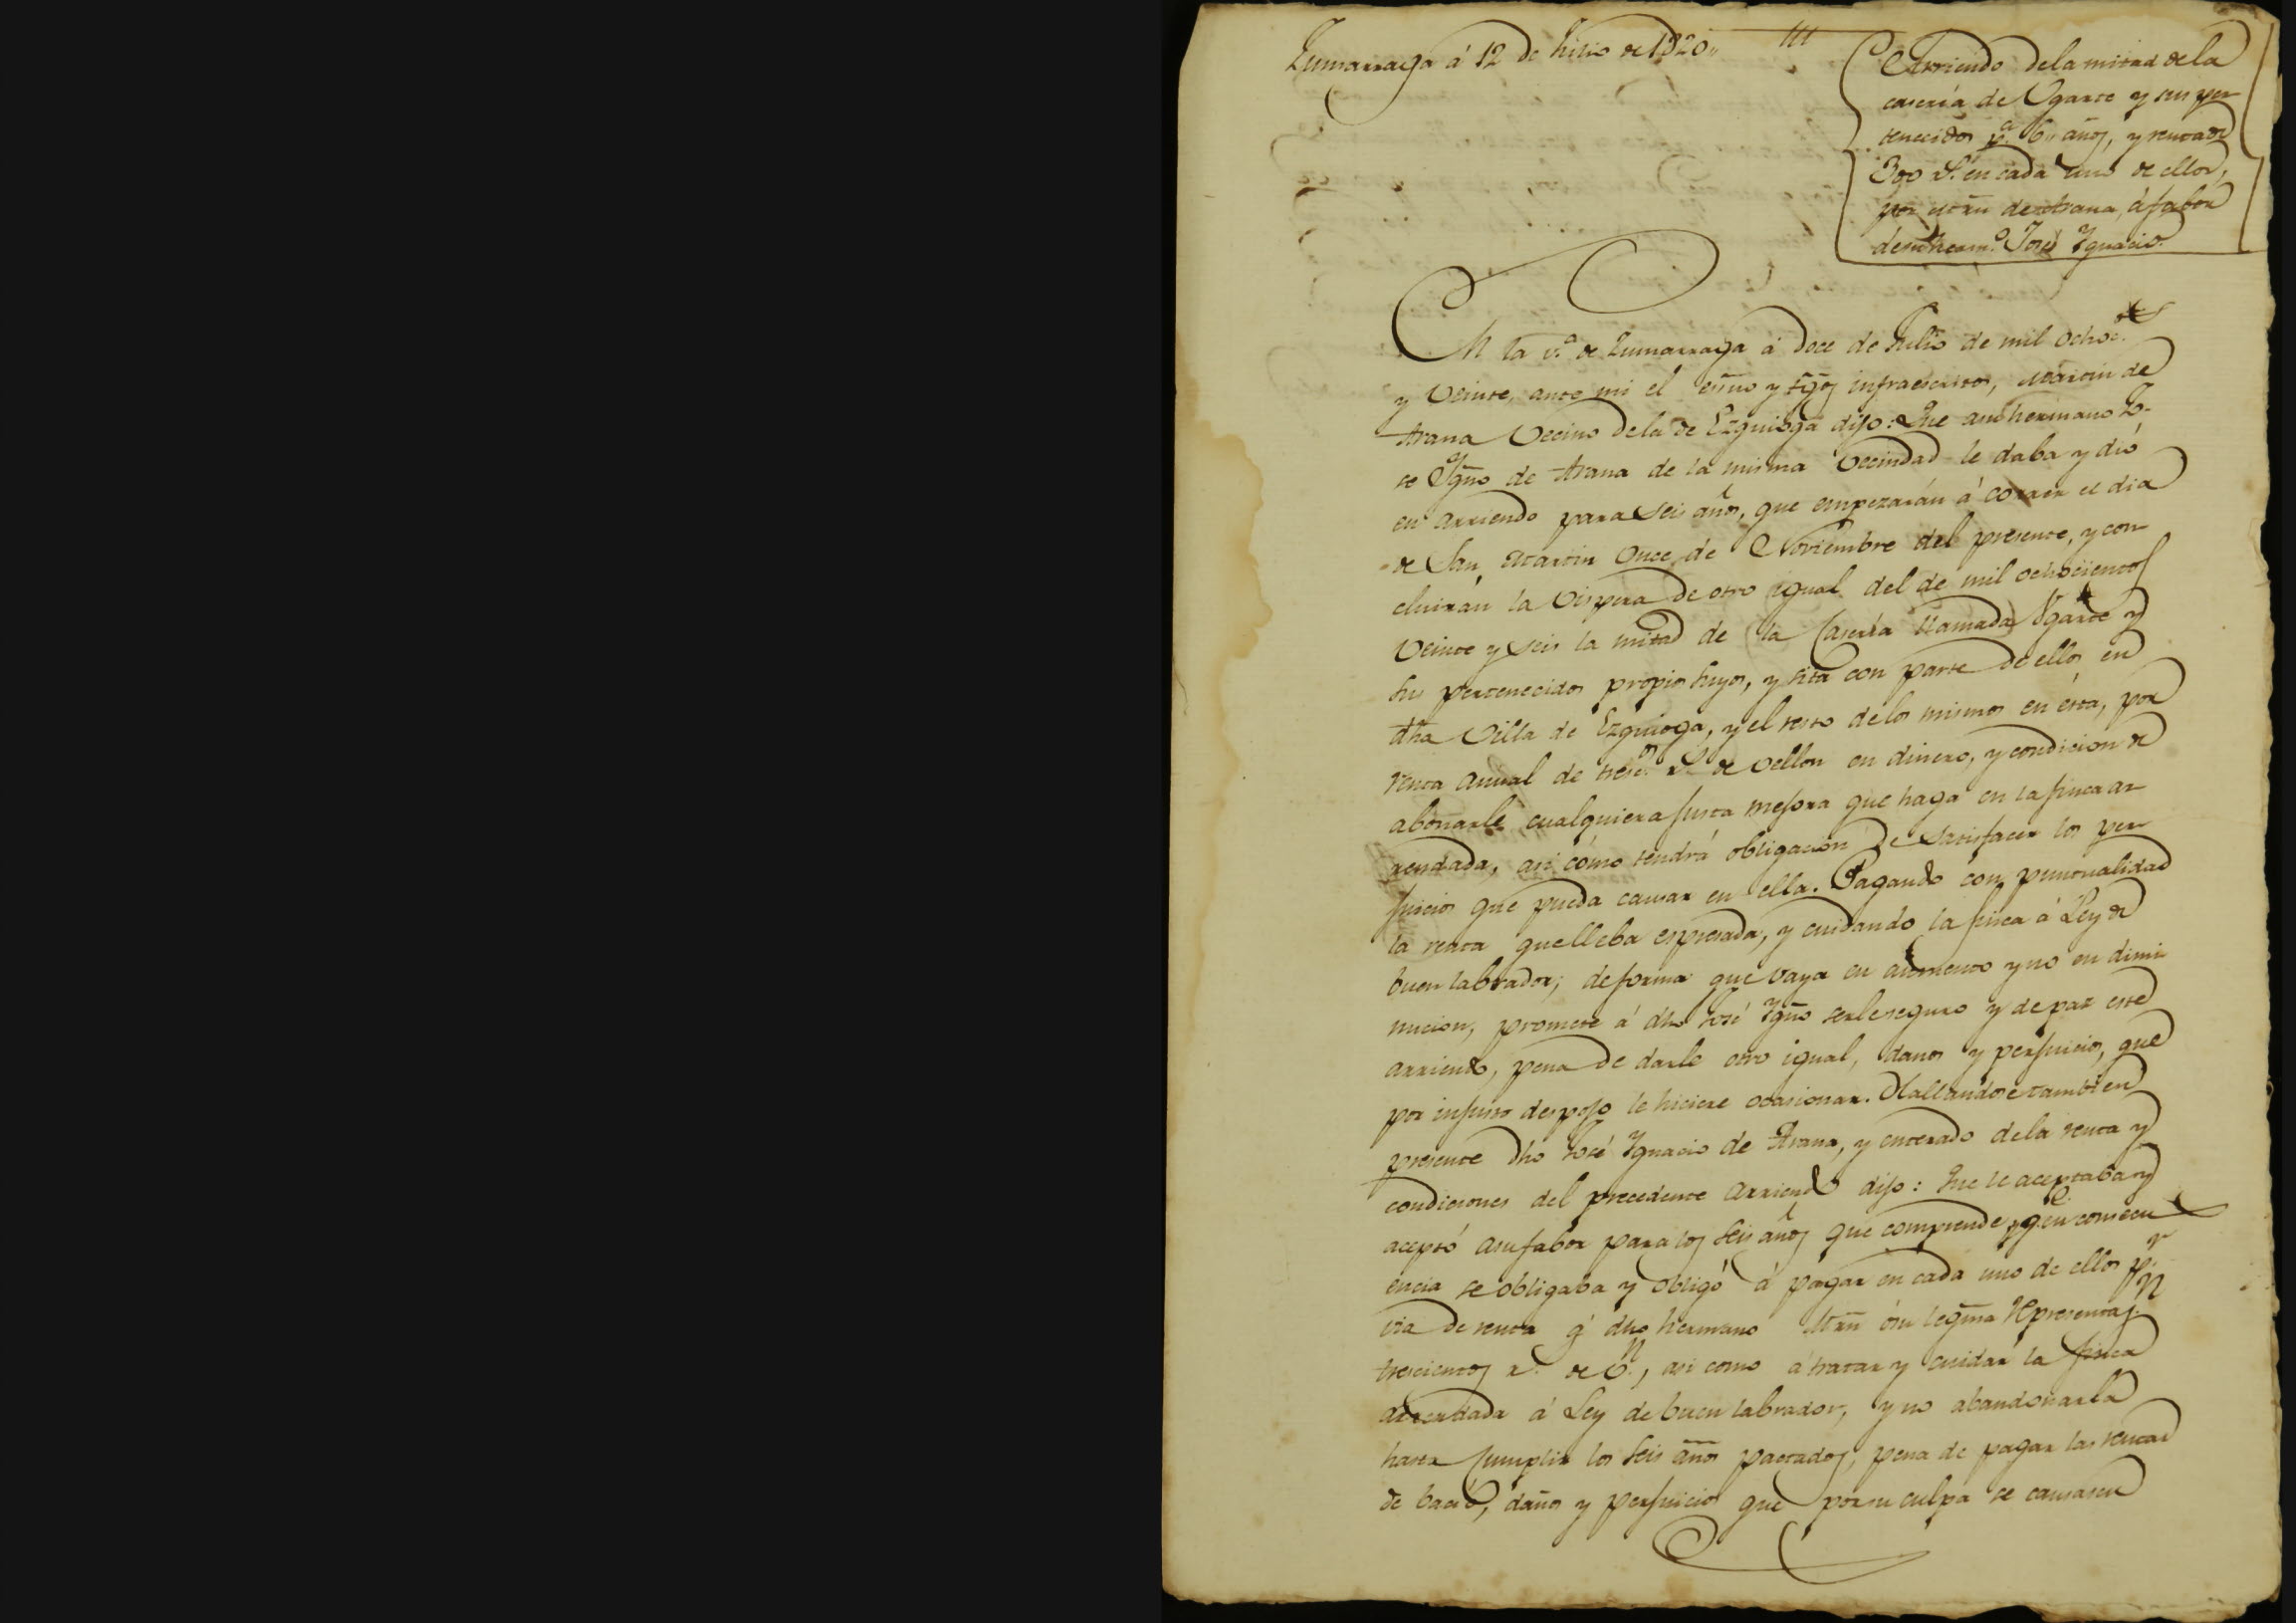 Zumarraga á 12 de Julio de 1820,,
Arriendo dela mitad de la
caseria de Ugarte y sus per
tenecidos p.ª 6,, años, y renta de
300 r.s en cada uno de ellos,
por Mrn de Arana, á fabor
de su herm.º José Ignacio.
En la v.ª de Zumarraga á doce de Julio de mil ochoc.tos
y Veinte, ante mi el essno y tgos infraescritos, Martin de
Arana Vecino dela de Ezquioga dijo: Que a su hermano Jo-
se Ygno de Arana de la misma Vecindad le daba y dió
en arriendo para seis años, que empezarán á correr el dia
de San Martin Once de Noviembre del presente, y con
cluirán la Vispera de otro igual del de mil ochocientos
Veinte y seis la mitad de la Caseria llamada Ugarte y
sus pertenecidos propios suyos, y sita con parte de ellos en
dha Villa de Ezquioga, y el resto delos mismos en ésta, por
renta anual de tresc.s r.s de vellon en dinero, y condicion de
abonarle cualquiera justa mejora que haga en la finca ar
rendada, asi cómo tendrá obligacion de satisfacer los per
juicios que pueda causar en ella. Pagando con puntualidad
la renta que lleba espresada, y cuidando la finca á Ley de
buen labrador; de forma que vaya en aumento y no en dimi
nucion, promete á dho José Ygno serle seguro y de paz este
arriendo, pena de darle otro igual, danos y perjuicios, que
por injusto despojo le hiciere ocasionar. Hallandose tambien
presente dho José Ygnacio de Arana, y enterado dela renta y
condiciones del precedente arriendo dijo: Que le aceptaba y
aceptó a su fabor para los seis años que comprende, y q.e en consecu
encia se obligaba y obligó á pagar en cada uno de ellos p.r
via de renta á dho hermano Mrn ó su legma representaz.n
trescientos r.s de v.n, asi como á tratar y cuidar la finca
arrendada á Ley de buen labrador, y no abandonarla
hasta cumplir los seis años pactados, pena de pagar las rentas
de bacio, daños y perjuicios que por su culpa se causasen